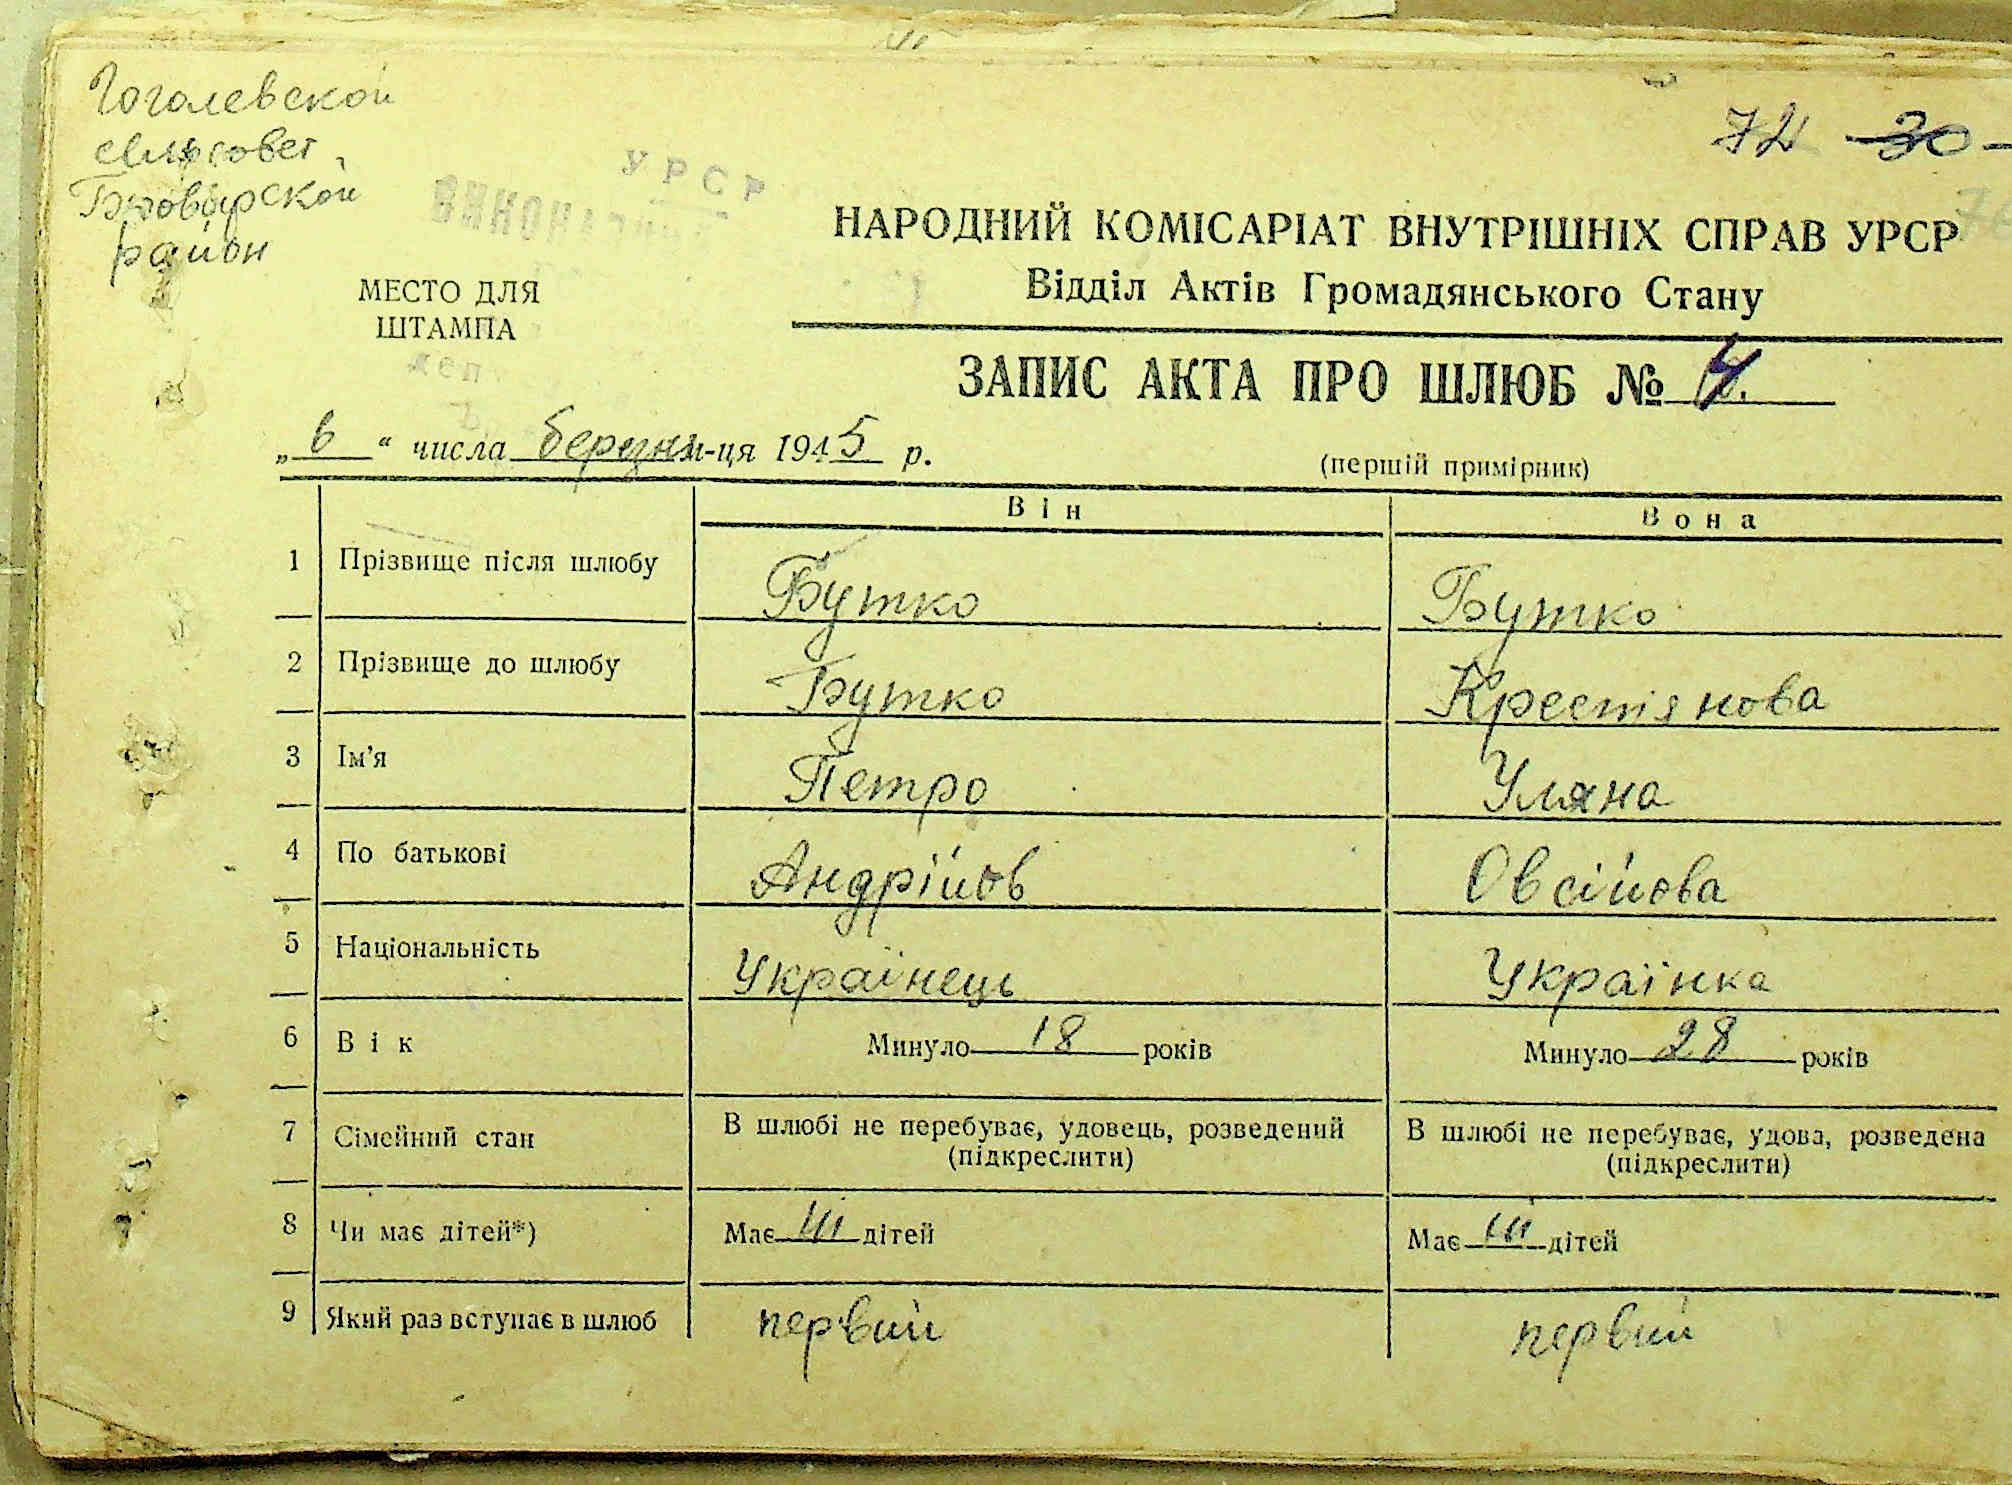 Гоголевской
сельсовет
Броварской
район
72 30
УРСР
МЕСТО ДЛЯ
ШТАМПА
НАРОДНИЙ КОМІСАРІАТ ВНУТРІШНІХ СПРАВ УРСР
Відділ Актів Громадянського Стану
ЗАПИС АКТА ПРО ШЛЮБ № 4.
„6“ числа березня-ця 1945 р.
(першій примірник)
Він Вона
1 Прізвище після шлюбу Бутко Бутко
2 Прізвище до шлюбу Бутко Крестянова
3 Ім'я Петро Уляна
4 По батькові Андрійов Овсійова
5 Національність Українець Українка
6 Вік Минуло 18 років Минуло 28 років
7 Сімейний стан В шлюбі не перебуває, удовець, розведений (підкреслити) В шлюбі не перебуває, удова, розведена (підкреслити)
8 Чи має дітей*) Має дітей Має дітей
9 Який раз вступає в шлюб первий первий